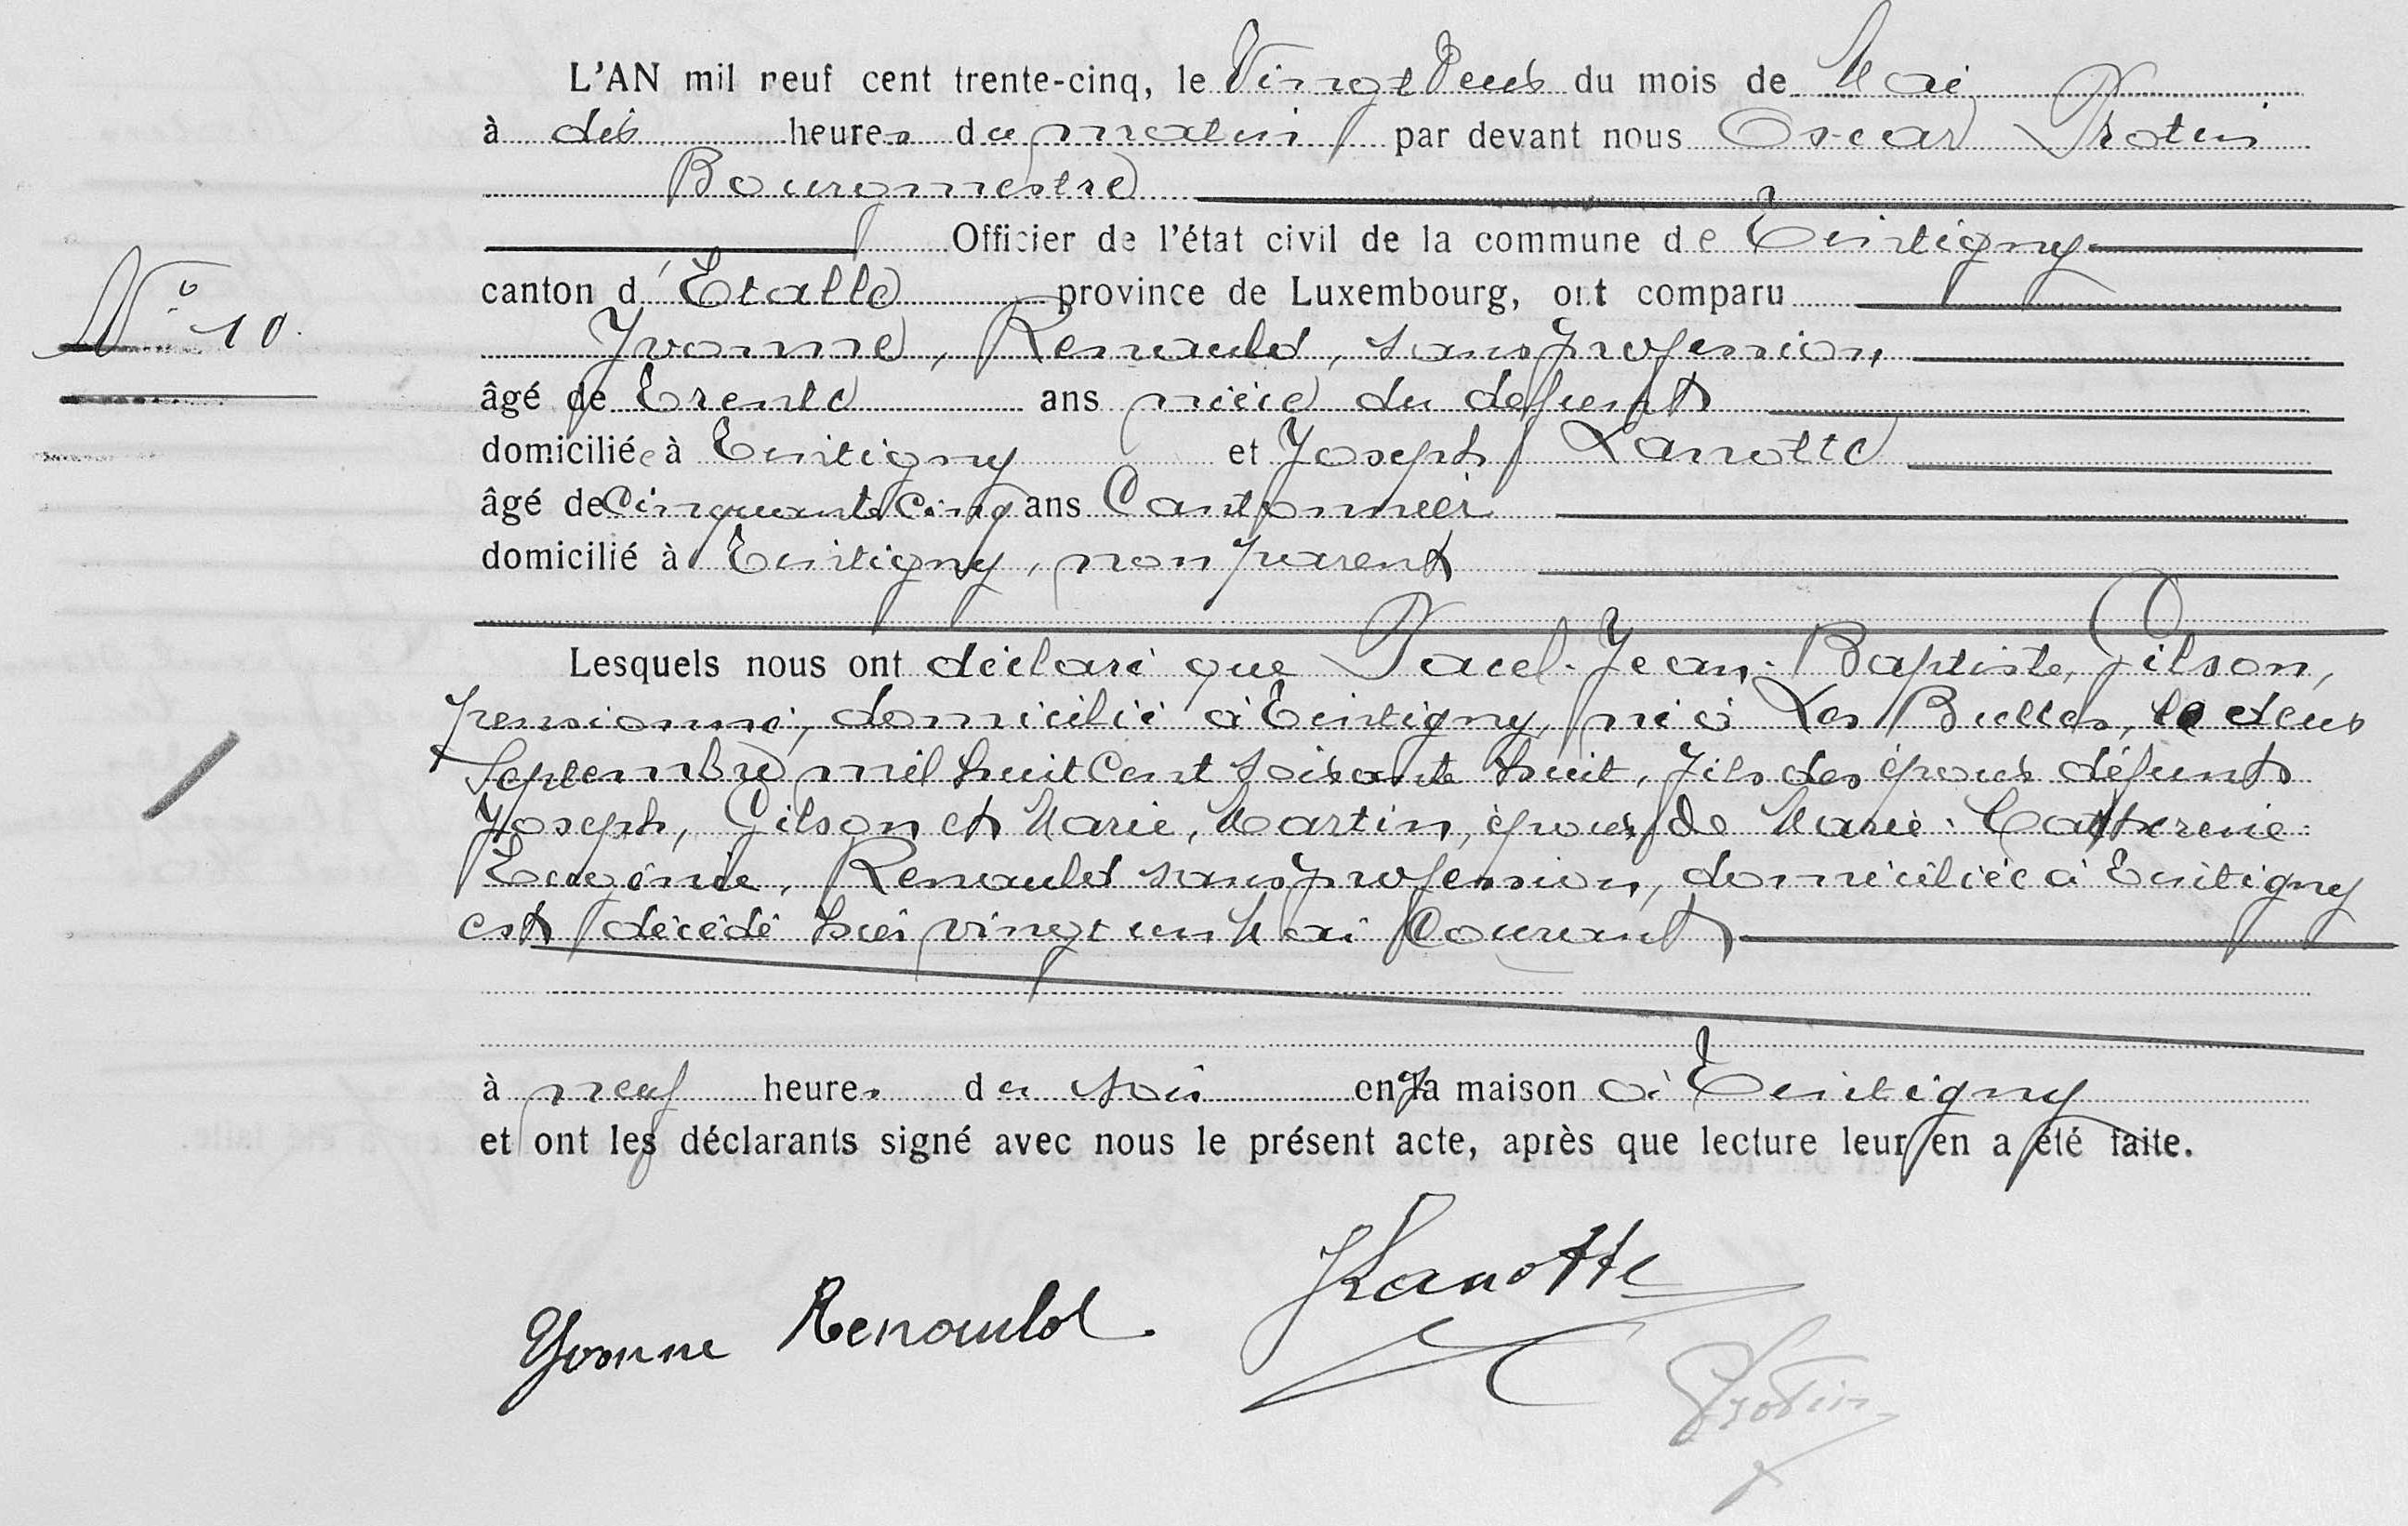 L'AN mil neuf cent trente-cinq, le Vingt Deux du mois de Mai
à dix heures du matin par devant nous Oscar Protin
Bourgmestre
Officier de l'état civil de la commune de Tintigny
N° 10
canton d'Etalle province de Luxembourg, ont comparu
Yvonne, Renauld, sans profession,
âgé de trente ans nièce du défunt
domiciliée à Tintigny et Joseph Lanotte
âgé de Cinquante Cinq ans Cantonnier
domicilié à Tintigny, non parent
Lesquels nous ont déclaré que Pacel-Jean-Baptiste, Gilson,
pensionné, domicilié à Tintigny, né à Les Bulles, le deux
Septembre mil huit Cent soixante huit, fils des époux défunts
Joseph, Gilson et Marie, Martin, époux de Marie-Catherine-
Eugénie, Renauld sans profession, domiciliée à Tintigny
est décédé hier vingt un Mai Courant
à neuf heures du soir en sa maison à Tintigny
et ont les déclarants signé avec nous le présent acte, après que lecture leur en a été faite.
JLanotte
Yvonne Renauld
Protin